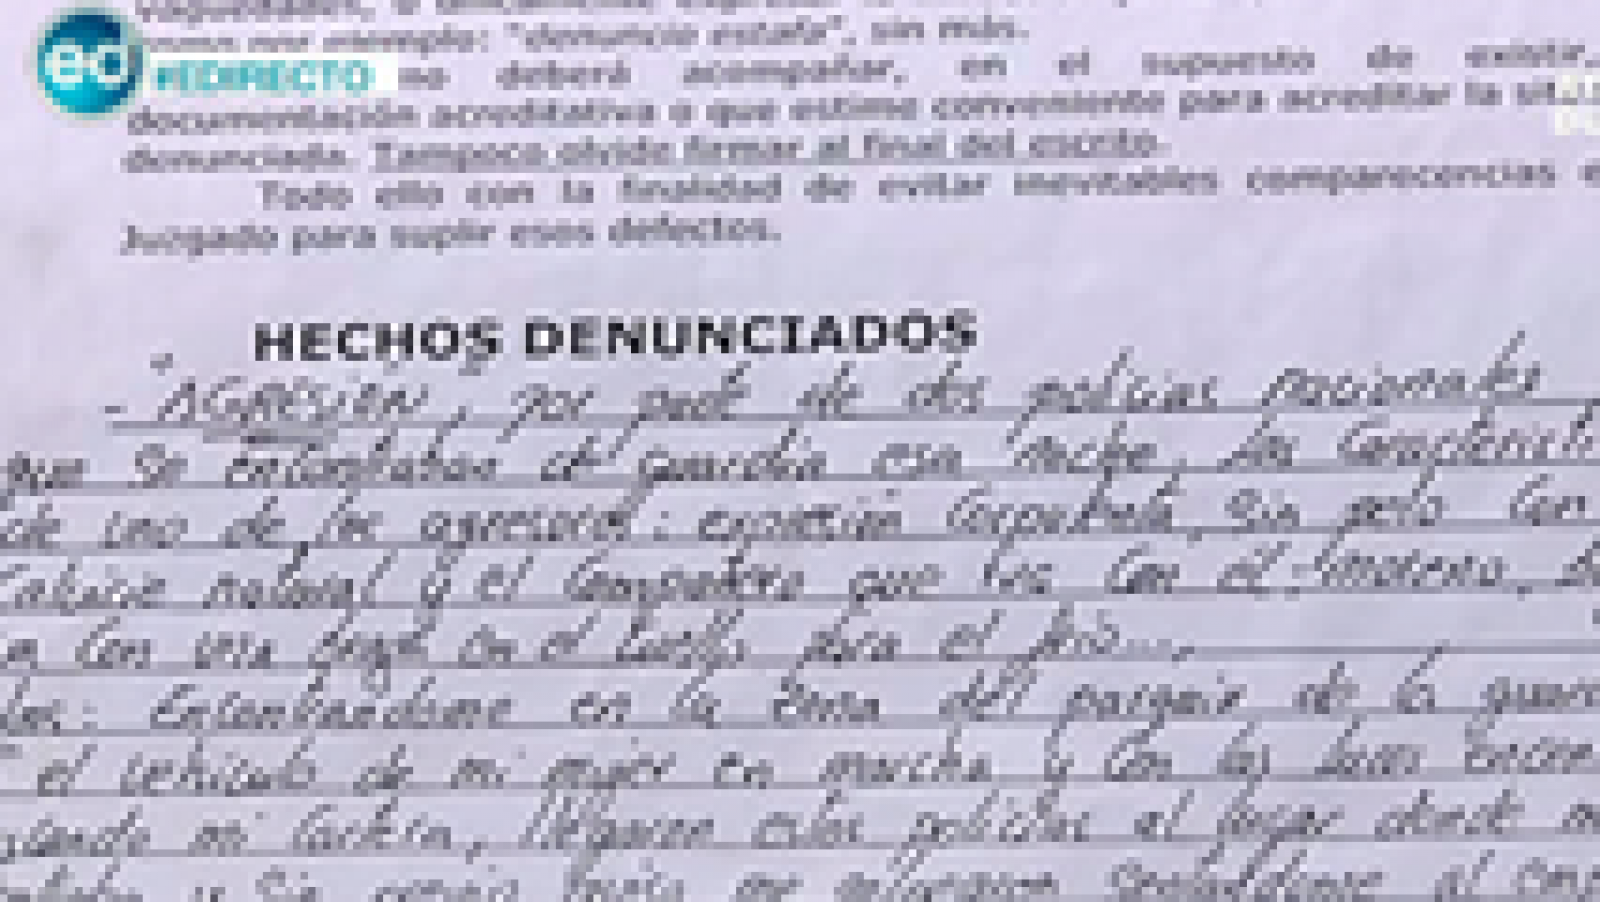 vaguedades, o únicamente
como por ejemplo: "denuncio estafa", sin más.
ed
#EDIRECTO
no deberá acompañar, en el supuesto de existir,
documentación acreditativa o que estime conveniente para acreditar la
denunciada. Tampoco olvide firmar al final del escrito.
Todo ello con la finalidad de evitar inevitables comparecencias e
Juzgado para suplir esos defectos.
HECHOS DENUNCIADOS
- "AGRESIÓN", por parte de dos policias nacionales,
que se encontraban de guardia esa noche, las Caracteristi
de uno de los agresores: expresión Corpulenta, Sin pelo Con
natural y el Compañero que iba Con él: moreno,
Con una braga en el Cuello para el frio...,
Encontrandome en la Zona del parquin de la guar
el vehiculo de mi mujer en marcha y Con las luces Encen
mi llegaron estos policias al lugar donde
y Sin me